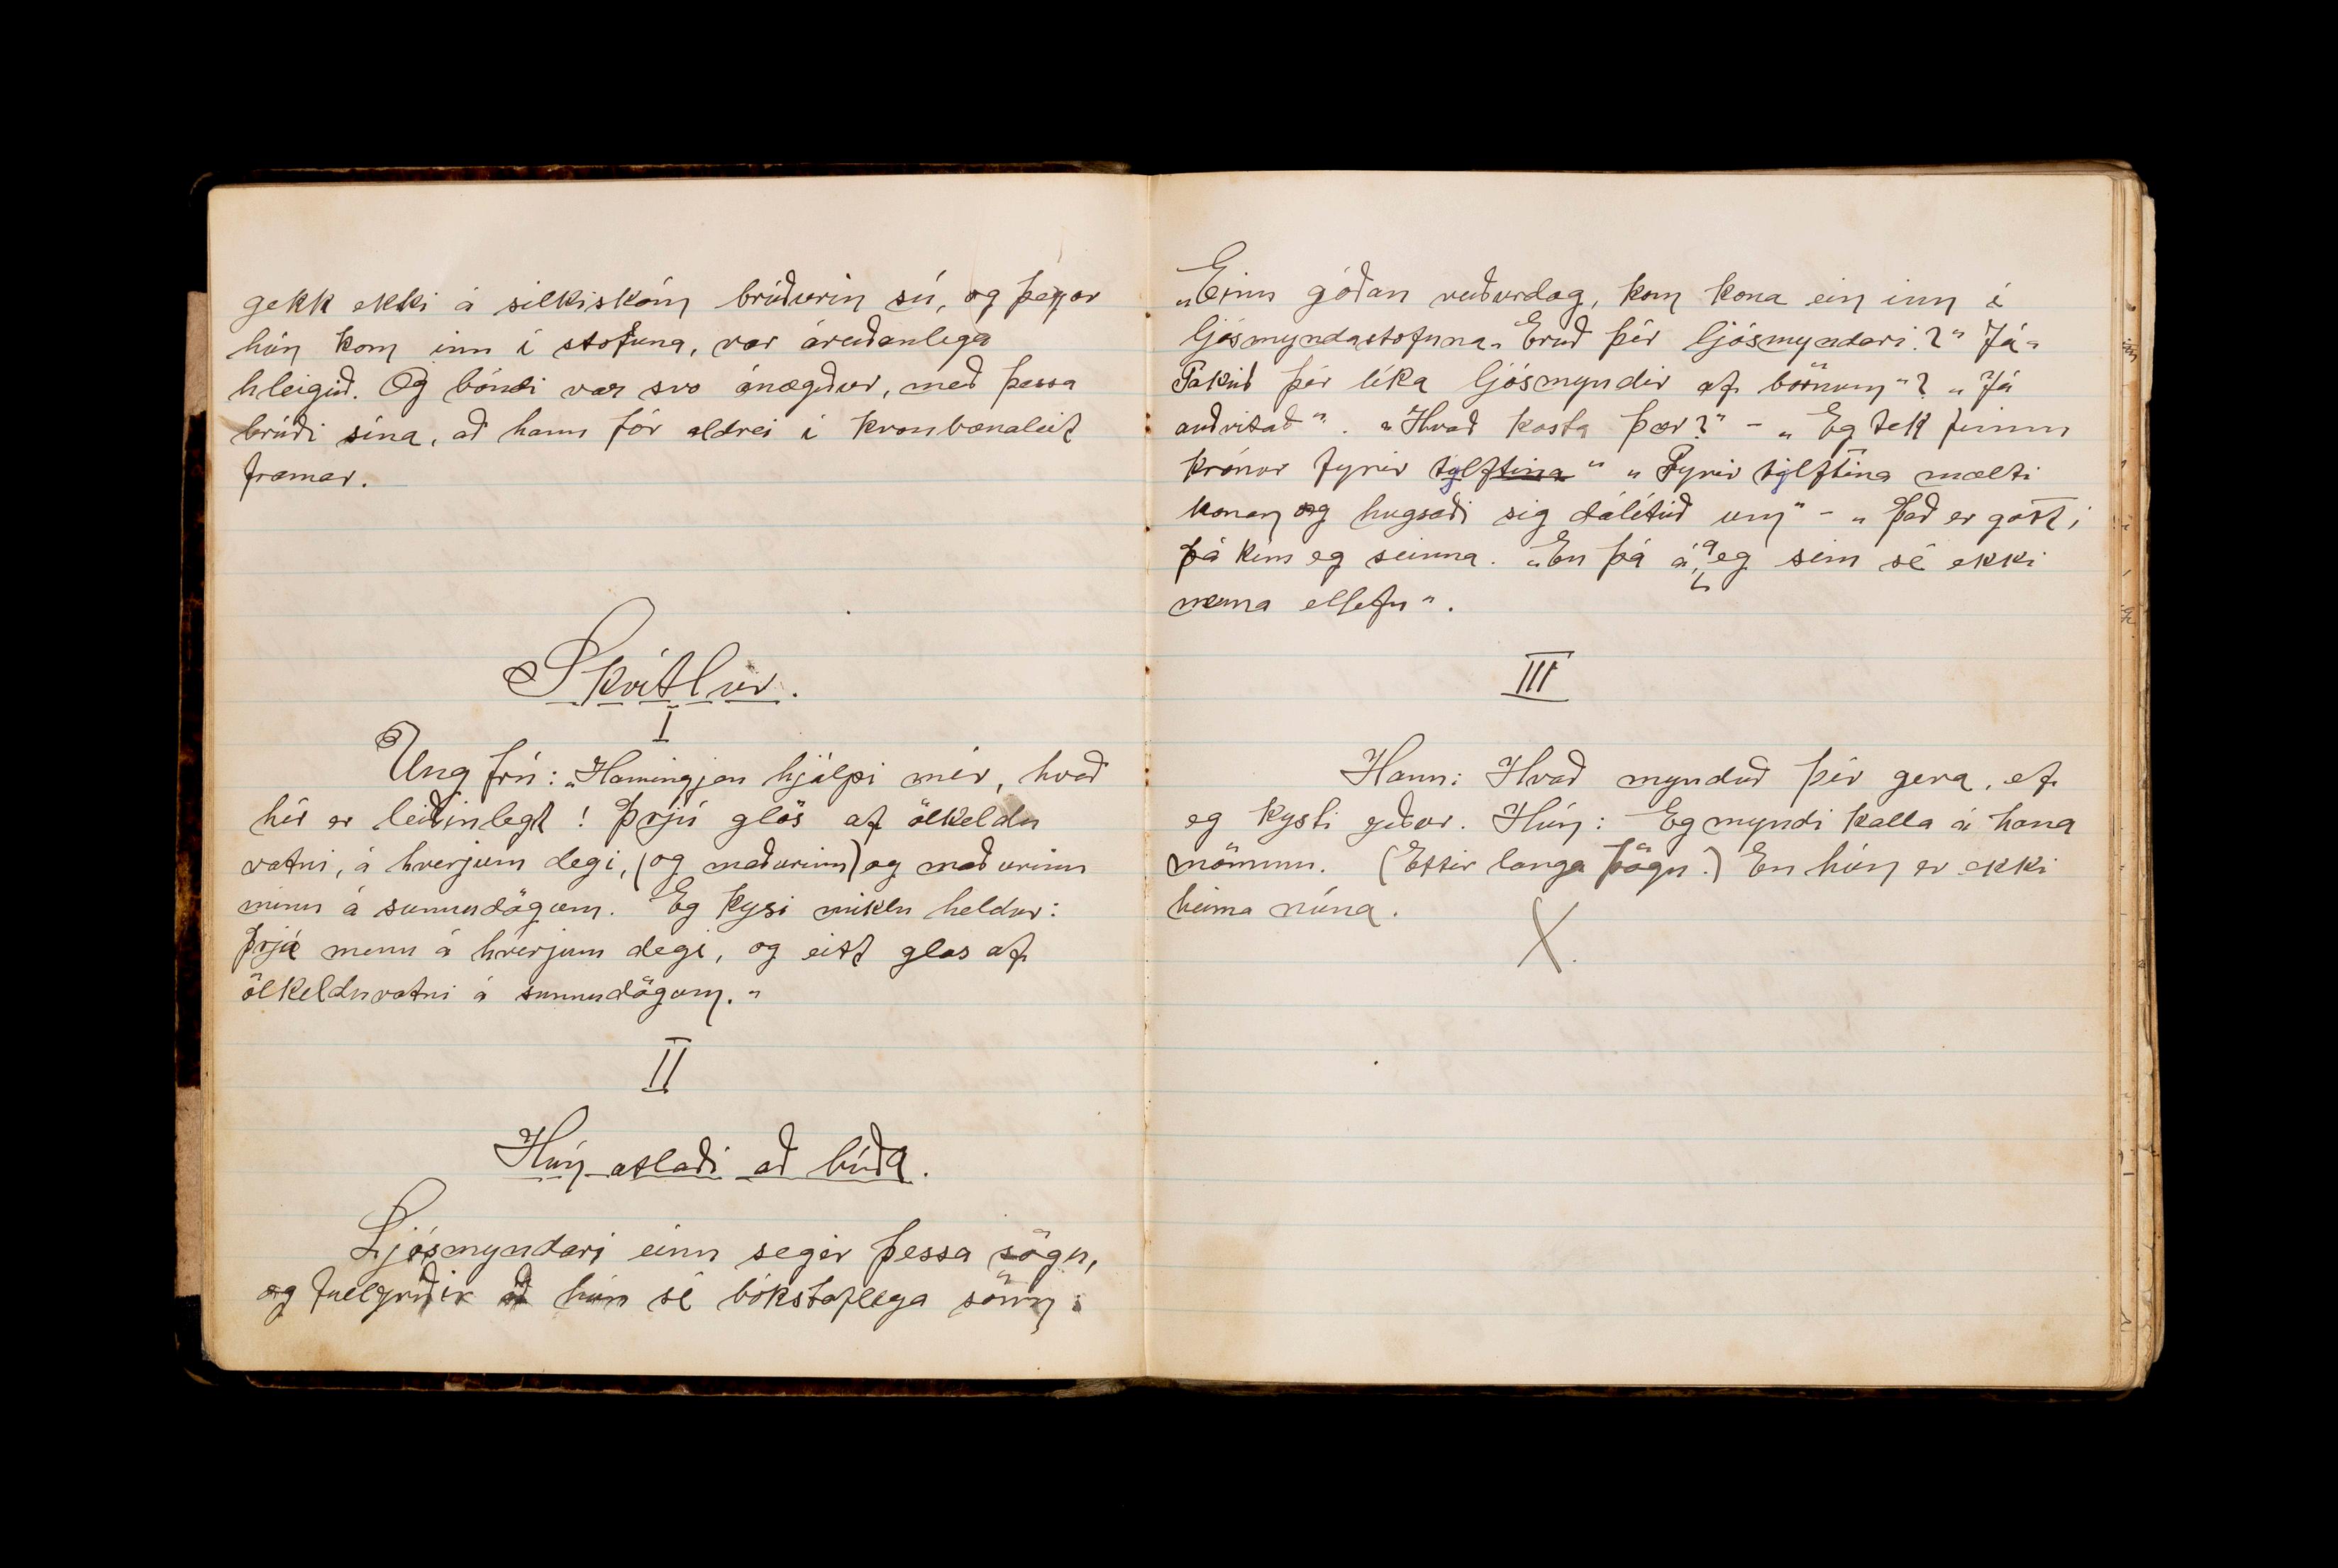 gekk ekki á silkiskóm brúðurin sú, og þegar
hún kom inn í stofuna, var áreiðanlega
hleigið. Og bóndi var svo ánægður, með þessa
brúði sína, að hann fór aldrei í kvonbænaleit
framar.
Skrítlur.
I
Ung frú: „Hamingjan hjálpi mér, hvað
hér er leiðinlegt! Þrjú glös af ölkeldu
vatni, á hverjum degi, (og maðurinn) og maðurinn
minn á sunnudögum. Eg kysi miklu heldur:
Þrjá menn á hverjum degi, og eitt glas af
ölkelduvatni á sunnudögum."
II
Hún ætlaði að bíða.
Ljósmyndari einn segir þessa sögu,
og fullyrðir að hún sé bókstaflega sönn:
„Einn góðan veðurdag, kom kona ein inn í
ljósmyndastofuna „Eruð þér ljósmyndari?" Já"
Takið þér líka ljósmyndir af börnum"? „Já
auðvitað". „Hvað kosta þær?" - „Eg tek fimm
krónur fyrir tylftina" „Fyrir tylftina mælti
konan og hugsaði sig dálítið um" - „Það er gott;
þá kem eg seinna. „En þá á eg sem sé ekki
nema ellefu".
III
Hann: Hvað mynduð þér gera, ef
eg kysti yður. Hún: Eg myndi kalla á hana
mömmu. (Eftir langa þögn.) En hún er ekki
heima núna.